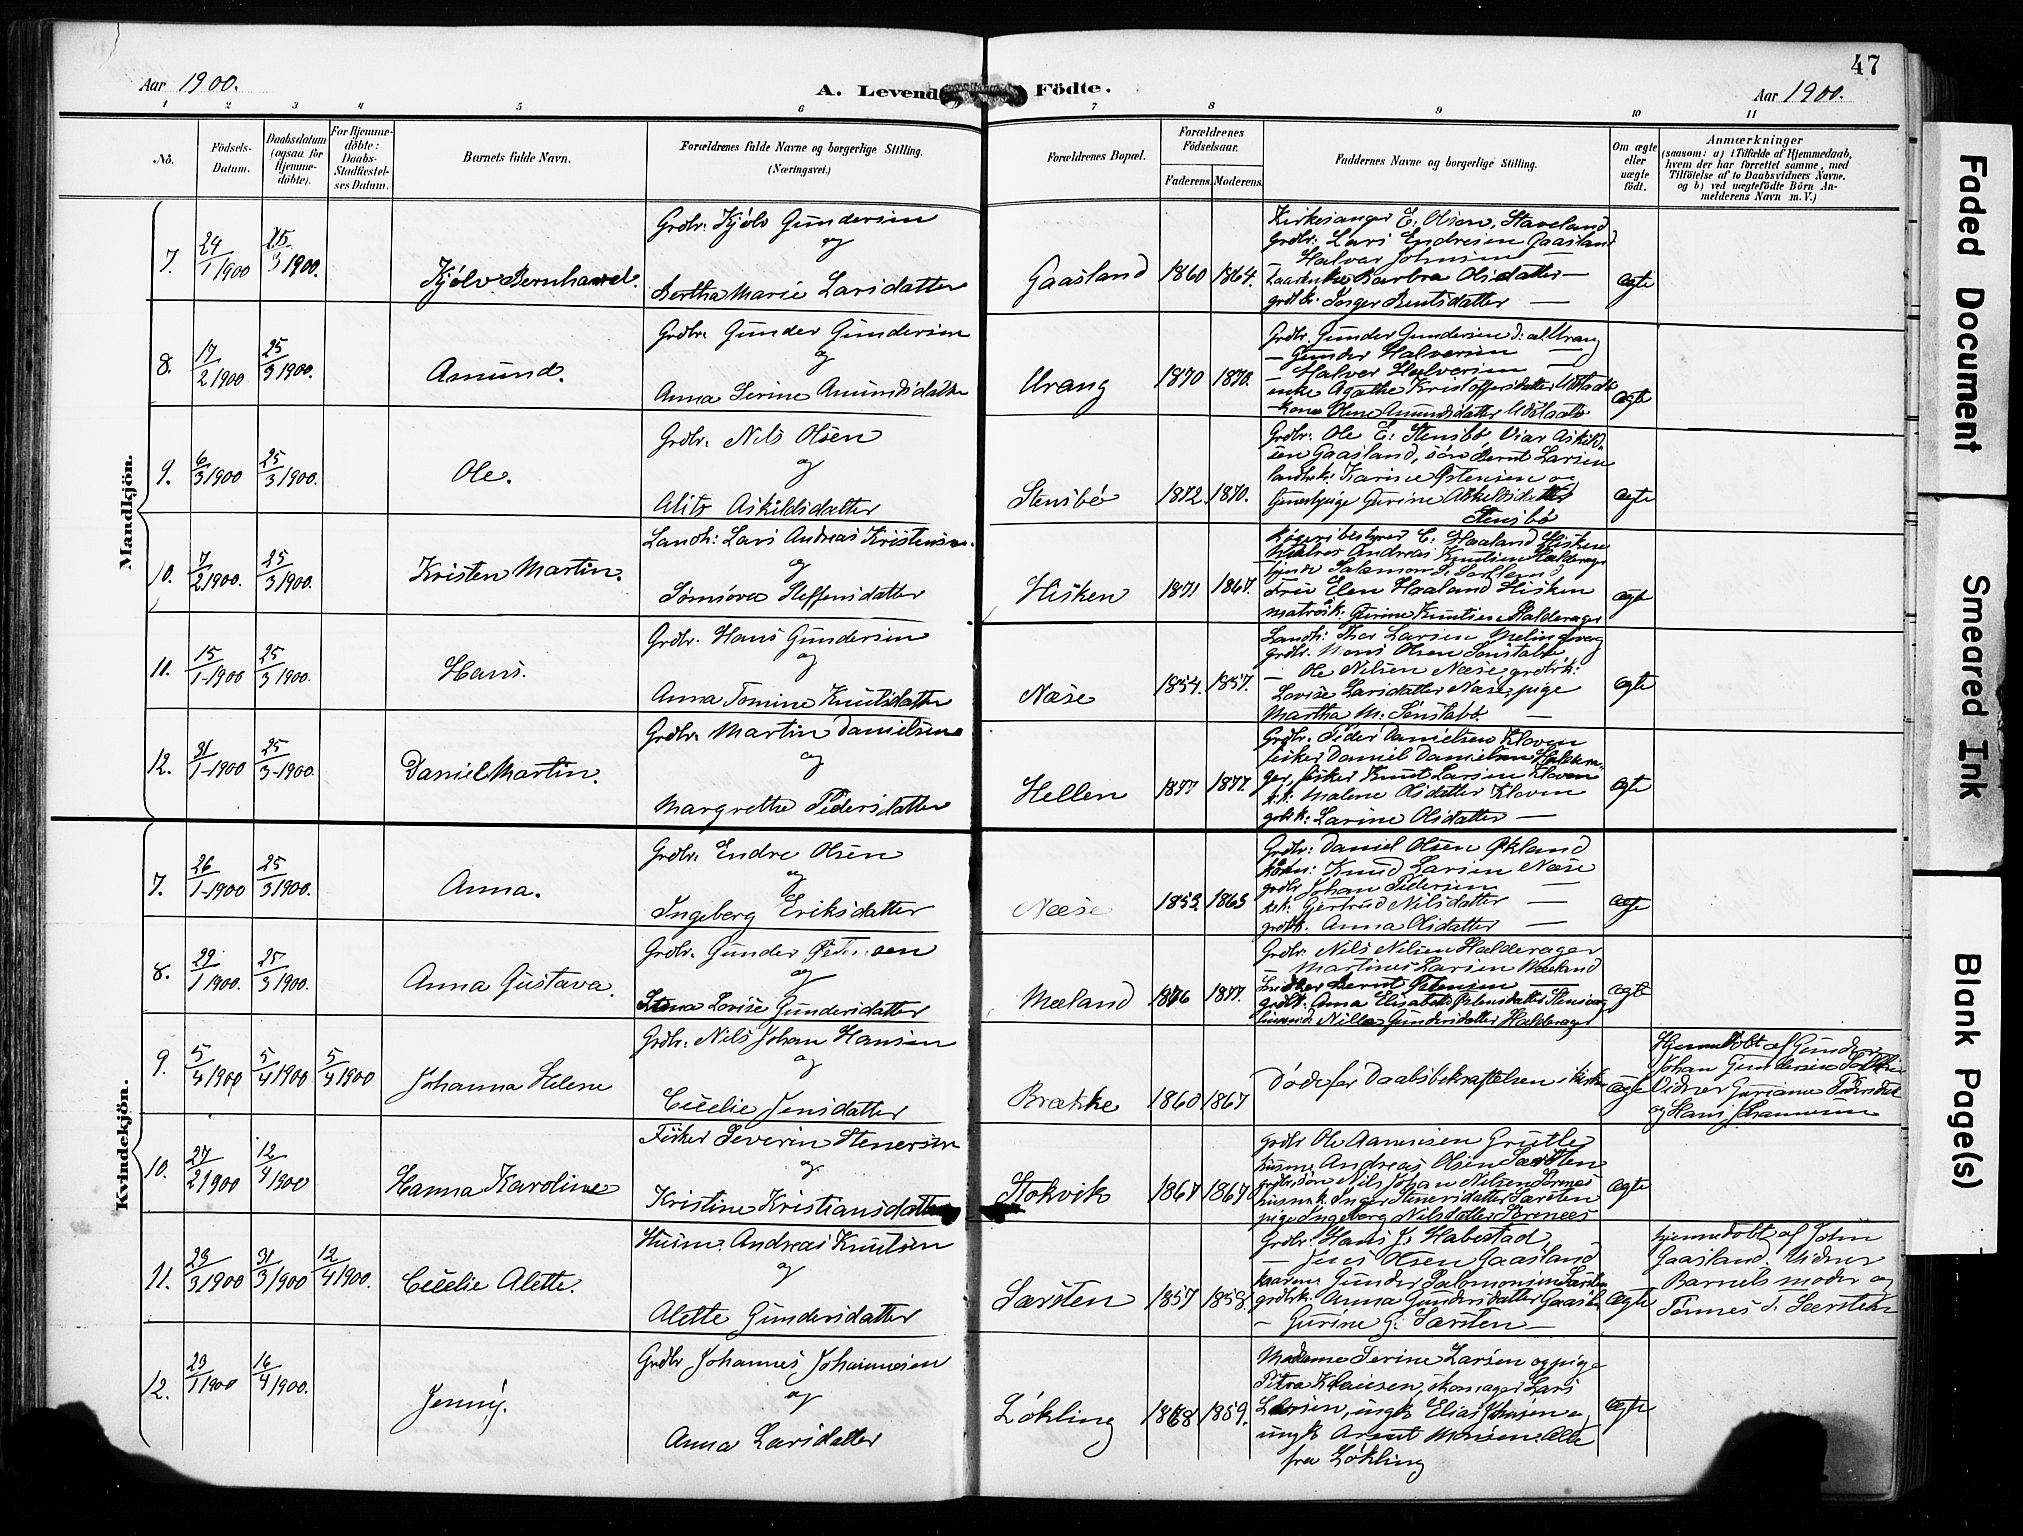 47
Aar 1900.
A. Levende Födte.
Aar 1900.
1 2 3 4 5 6 7 8 9 10 11
Nö.
Födsels-Datum.
Daabsdatum (ogsaa for Hjemme-döbte).
For Hjemme-döbte: Daabs-Stadfæstel-ses Datum.
Barnets fulde Navn.
Forældrenes fulde Navne og borgerlige Stilling. (Næringsvei.)
Forældrenes Bopæl.
Forældrenes Födselsaar.
Faderens. Moderens.
Faddernes Navne og borgerlige Stilling.
Om ægte eller uægte födt.
Anmærkninger
(saasom: a) i Tilfælde af Hjemmedaab,
hvem der har forrettet samme, med
Tilföielse af to Daabsvidners Navne.
og b) ved uægtefödte Börn An-
melderens Navn m. V.)
Mandkjön.
7. 24/1 1900 25/3 1900. Kjølv Bernhard.
Grdbr. Kjølv Gundersen
og
Bertha Marie Larsdatter
Gaasland 1860 1864.
Kirkesanger E. Olsen, Staveland
grdbr. Lars Endresen Gaasland
— Halvar Johnsen —
Barbra Olsdatter —
Inger Bentsdatter —
ægte
8. 17/2 1900 25/3 1900. Amund.
Grdbr. Gunder Gundersen
og
Anna Serine Amundsdatter
Urang 1870 1870.
Grdbr. Gunder Gundersen d: æl. Urang
— Gunder Halversen —
— Halver Halversen —
enke Agathe Kristoffersdatter
Kone Oline Amundsdatter
ægte
9. 6/3 1900 25/3 1900. Ole.
Grdbr. Nils Olsen
og
Alits Askildsdatter
Stensbø 1872. 1870.
Grdbr. Ole E. Stensbø, Viar Askild-
sen Gaasland, søn Bernt Larsen
Karine Østensen og
Gurine Askildsdatter
Stensbø
ægte
10. 7/2 1900. 25/3 1900. Kristen Martin.
Landh: Lars Andreas Kristensen
og
Steffensdatter
Hisken 1871 1867.
E. Haaland Hisken
Andreas Knutsen Halderager
Salamon
Fru Elen Haaland Hisken
matrosk. Gurine Knutsen Halderager
ægte
11. 15/1-1900 25/3 1900. Hans.
Grdbr. Hans Gundersen
og
Anna Tomine Knutsdatter
Næse 1854. 1857.
Landh: Thor Larsen
grdbr. Mons Olsen Sønstabø
— Ole Nilsen Næse, grdbrk:
Lovise Larsdatter Næse, pige
Martha M. Sønstabø. —
ægte
12. 31/1-1900 25/3-1900. Daniel Martin.
Grdbr. Martin Danielsen
og
Margrethe Pedersdatter
Hellen 1877 1877.
Grdbr. Peder Danielsen Kloven
fisker Daniel Danielsen Haldera-
ger, fisker Knut Larsen Kloven
Malene Olsdatter Kloven
Larine Olsdatter —
ægte
Kvindekjön.
7. 26/1-1900 25/3 1900. Anna.
Grdbr. Endre Olsen
og
Ingeberg Eriksdatter
Næse 1853. 1863
Grdbr: Daniel Olsen Økland
Knud Larsen Næse
grdbr Johan Pedersen —
Gjertrud Nilsdatter —
Anna Olsdatter —
ægte
8. 29/1 1900. 25/3 1900. Anna Gustava.
Grdbr. Gunder Petersen
og
Lovise Gundersdatter
Mæland 1876 1877.
Grdbr. Nils Nilsen Halderager
— Martines Larsen Mæland
Bernt Petersen —
Anna Elisabeth
Nilla Gundersdatter Halderager
ægte
9. 5/4 1900 5/4 1900 5/4 1900 Johanna Helene
Grdbr. Nils Johan Hansen
og
Cecelie Jensdatter
Brække 1860 1867
Døde før Daabsbekræftelsen i kirke
ægte
Hjemmedøbt af Gunder
Johan Gundersen
Vidner Guriane Pedersdat
og Hans Johannesen
10. 27/2 1900 12/4 1900 Hanna Karoline
Fisker Severin Stenersen
og
Kristine Kristiansdatter
Stokvik 1867 1867
grdbr Ole Aamesen Grutle
husm. Andreas Olsen Særsten
Nils Johan Nilsen Sørenes
Inger Stenersdatter Særsten
pige Ingeberg Nilsdatter Sørenes
ægte
11. 23/3 1900 31/3 1900 12/4 1900. Cecelie Alette.
Husm. Andreas Knutsen
og
Alette Gundersdatter
Særsten 1857 1858.
Grdbr. Hans J. Habestad
— Jens Olsen Gaasland
Gunder Salomonsen Særsten
grdbrk. Anna Gundersdatter Gaasla
— Gurine G. Særsten —
ægte
hjemmedøbt af John
Gaasland. Vidner
Barnets moder og
Tønnes T. Særsten
12. 23/1 1900 16/4 1900. Jenny.
Grdbr Johannes Johannesen
og
Anna Larsdatter
Løkling 1868 1859.
Madame Serine Larsen og pige
Petra Klausen, skomager Lars
Larsen, ungk Elias Johnsen og
ungk Arent Monsen. Alle
fra Løkling
ægte
Faded Document
Smeared Ink
Blank Page(s)